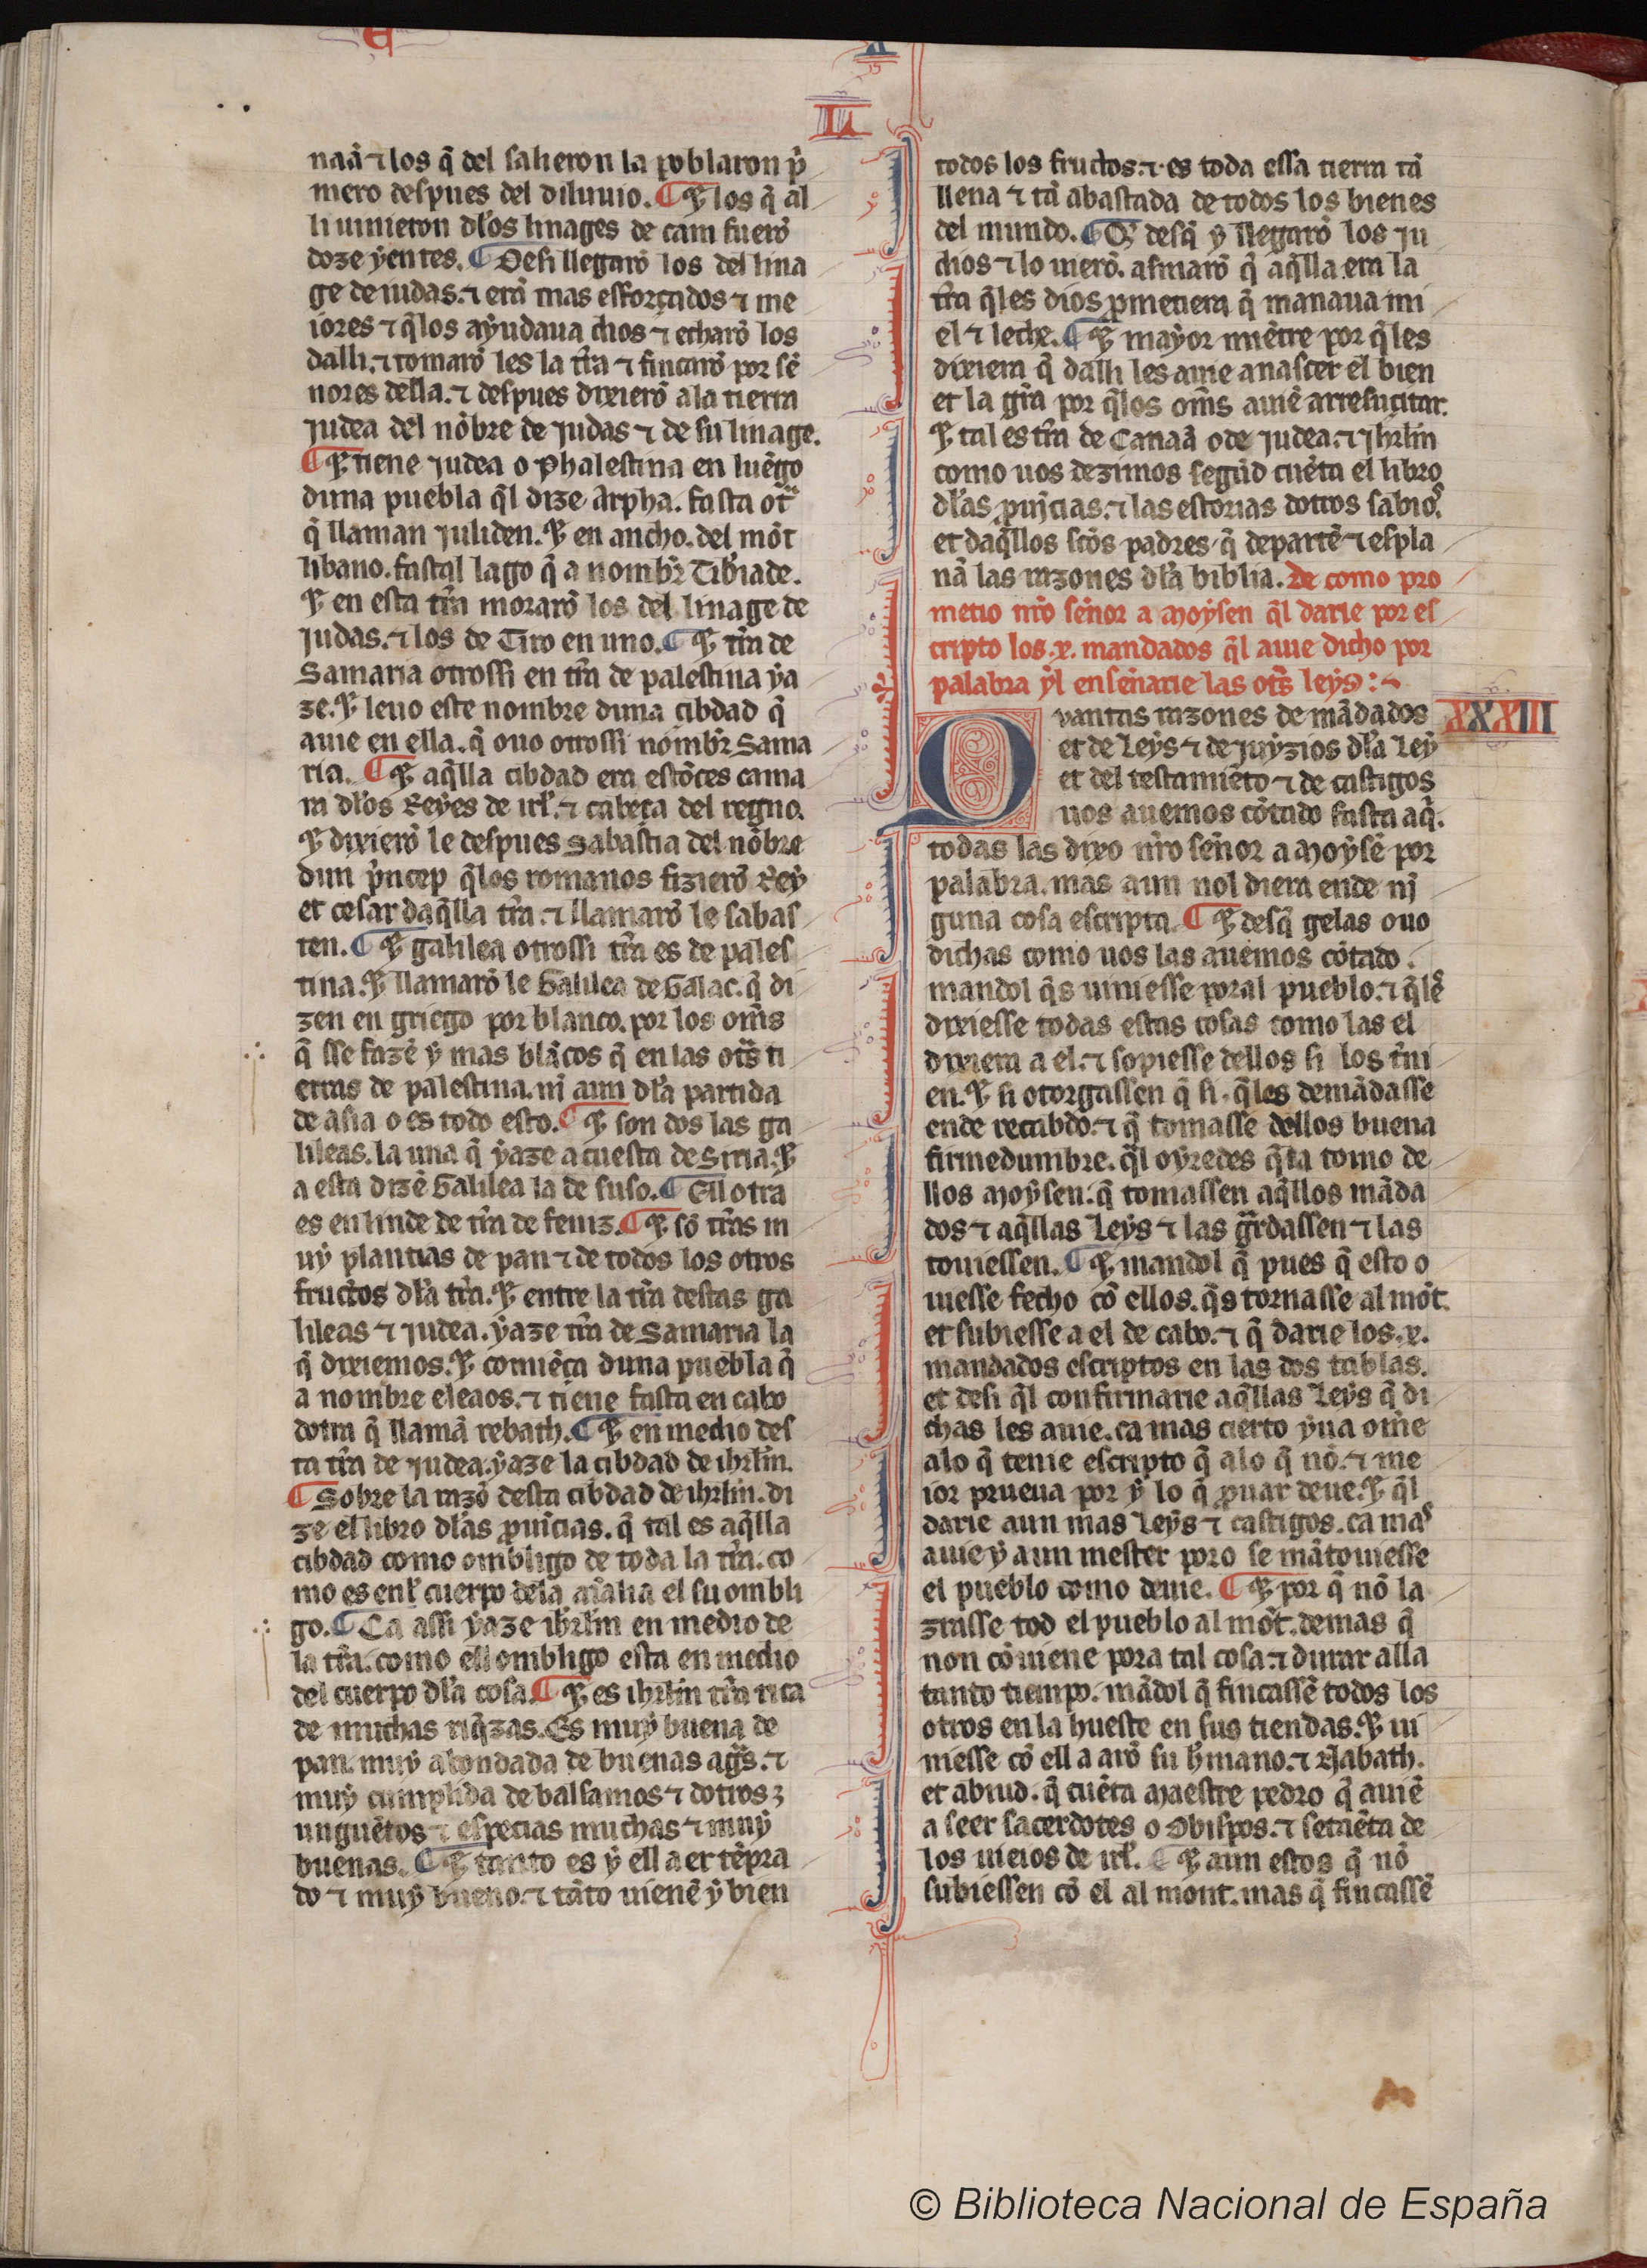 L
naã ⁊ los q̃ del salieron la poblaron p̃
mero despues del diluuio. ¶ Et los q̃ al
li uinieron dl̃os linages de cam fuerõ
doze yentes. ¶ Desi llegarõ los del lina
ge de iudas. ⁊ erã mas efforçados ⁊ me
iores ⁊ q̃los ayudaua dios ⁊ echarõ los
dalli. ⁊ tomarõ les la tr̃ra ⁊ fincarõ por sẽ
nores della. ⁊ despues dixierõ ala tierra
Judea del nõbre de Judas ⁊ de su linage.
¶ Et tiene Judea o Phalestina en luẽgo
duna puebla q̃l dize Arpha. fasta otra
q̃ llaman Juliden. Et en ancho. del mõt
libano. fastal lago q̃ a nombr̃ Tib̃iade.
Et en esta tr̃ra morarõ los del linage de
Judas. ⁊ los de Tiro en uno. ¶ Et tr̃ra de
Samaria otrossi en tr̃ra de palestina ya
ze. Et leuo este nombre duna cibdad q̃
auie en ella. q̃ ouo otrossi nombr̃ Sama
ria. ¶ Et aq̃lla cibdad era estõces cama
ra dl̃os Reyes de irl̃. ⁊ cabeça del regno.
Et dixierõ le despues Sabastia del nõbre
dun p̃ncep q̃los romanos fizierõ Rey
et cesar daq̃lla tr̃ra. ⁊ llamarõ le sabas
ten. ¶ Et galilea otrossi tr̃ra es de pales
tina. Et llamarõ le Galilea de Galac. q̃ di
zen en griego por blanco. por los om̃s
q̃ sse fazẽ y mas blãcos q̃ en las otr̃s ti
erras de palestina. nĩ aun dl̃a partida
de asia o es todo esto. ¶ Et son dos las ga
lileas. la una q̃ yaze acuesta de Siria. Et
a esta dizẽ Galilea la de suso. ¶ Ell otra
es en linde de tr̃ra de feniz. ¶ Et sõ tr̃ras m
uy plantias de pan ⁊ de todos los otros
fructos dl̃a tr̃ra. Et entre la tr̃ra destas ga
lileas ⁊ Judea. yaze tr̃ra de Samaria la
q̃ dixiemos. Et comiẽça duna puebla q̃
a nombre eleaos. ⁊ tiene fasta en cabo
dotra q̃ llamã rebath. ¶ Et en medio des
ta tr̃ra de Judea. yaze la cibdad de ihrl̃m.
¶ Sobre la razõ desta cibdad de ihrl̃m. di
ze el libro dl̃as prouĩcias. q̃ tal es aq̃lla
cibdad como ombligo de toda la tr̃ra. co
mo es enl̃ cuerpo dela aĩalia el su ombli
go. ¶ Ca assi yaze ihrl̃m en medio de
la tr̃ra. como ell ombligo esta en medio
del cuerpo dl̃a cosa. ¶ Et es ihrl̃m tr̃ra rica
de muchas riq̃zas. Es muy buena de
pan. muy abondada de buenas ag̃s. ⁊
muy cumplida de balsamos ⁊ dotros
unguẽtos ⁊ especias muchas ⁊ muy
buenas. ¶ Et tanto es y ell aer tẽpra
do ⁊ muy bueno. ⁊ tãto uienẽ y bien
todos los fructos. ⁊ es toda essa tierra tã
llena ⁊ tã abastada de todos los bienes
del mundo. ¶ Et desq̃ y llegarõ los Ju
dios ⁊ lo uierõ. asmarõ q̃ aq̃lla era la
tr̃ra q̃les dios prometiera q̃ manaua mi
el ⁊ leche. ¶ Et mayor miẽtre por q̃les
dixiera q̃ dalli les auie a nascer el bien
et la gr̃a por q̃los om̃s auiẽ arresucitar.
Et tal es tr̃ra de Canaã o de Judea. ⁊ Jhrl̃m
como uos dezimos segũd cuẽta el libro
dl̃as prouĩcias. ⁊ las estorias dotros sabios.
et daq̃llos sc̃os padres q̃ departẽ ⁊ espla
nã las razones dl̃a biblia. De como pro
metio nr̃o señor a Moysen q̃l darie por es
cripto los .x. mandados q̃l auie dicho por
palabra yl enseñarie las otr̃s leys:
XXXIII
Quantas razones de mãdados
et de Leys ⁊ de juyzios dl̃a Ley
et del testamiẽto ⁊ de castigos
uos auemos cõtado fasta aq̃.
todas las dixo nr̃o señor a Moysẽ por
palabra. mas aun nol diera ende nĩ
guna cosa escripta. ¶ Et desq̃ gelas ouo
dichas como uos las auemos cõtado.
mandol q̃s uiniesse poral pueblo. ⁊ q̃lẽs
dixiesse todas estas cosas como las el
dixiera a el. ⁊ sopiesse dellos si los tr̃ni
en. Et si otorgassen q̃ si. q̃les demãdasse
ende recabdo. ⁊ q̃ tomasse dellos buena
firmedumbre. q̃l oyredes q̃la tomo de
llos Moysen. q̃ tomassen aq̃llos mãda
dos ⁊ aq̃llas Leys ⁊ las gr̃dassen ⁊ las
touiessen. ¶ Et mandol q̃ pues q̃ esto o
uiesse fecho cõ ellos. q̃s tornasse al mõt.
et subiesse a el de cabo. ⁊ q̃ darie los .x.
mandados escriptos en las dos tablas.
et desi q̃l confirmarie aq̃llas Leys q̃ di
chas les auie. ca mas cierto yua om̃e
alo q̃ tenie escripto q̃ alo q̃ nõ. ⁊ me
ior prueua por y lo q̃ prouar deue. Et q̃l
darie aun mas Leys ⁊ castigos. ca mas
auie y aun mester poro se mãtouiesse
el pueblo como deuie. ¶ Et por q̃ nõ la
zrasse tod el pueblo al mõt. demas q̃
non cõuiene pora tal cosa. ⁊ durar alla
tanto tiempo. mãdol q̃ fincassẽ todos los
otros en la hueste en sus tiendas. Et ui
niesse cõ ell a arõ su h̃mano. ⁊ Nabath.
et abiud. q̃ cuẽta Maestre pedro q̃ auiẽ
a seer sacerdotes o Obispos. ⁊ setaẽta de
los uieios de irl̃. ¶ Et aun estos q̃ nõ
subiessen cõ el al mont. mas q̃ fincassẽ
© Biblioteca Nacional de España